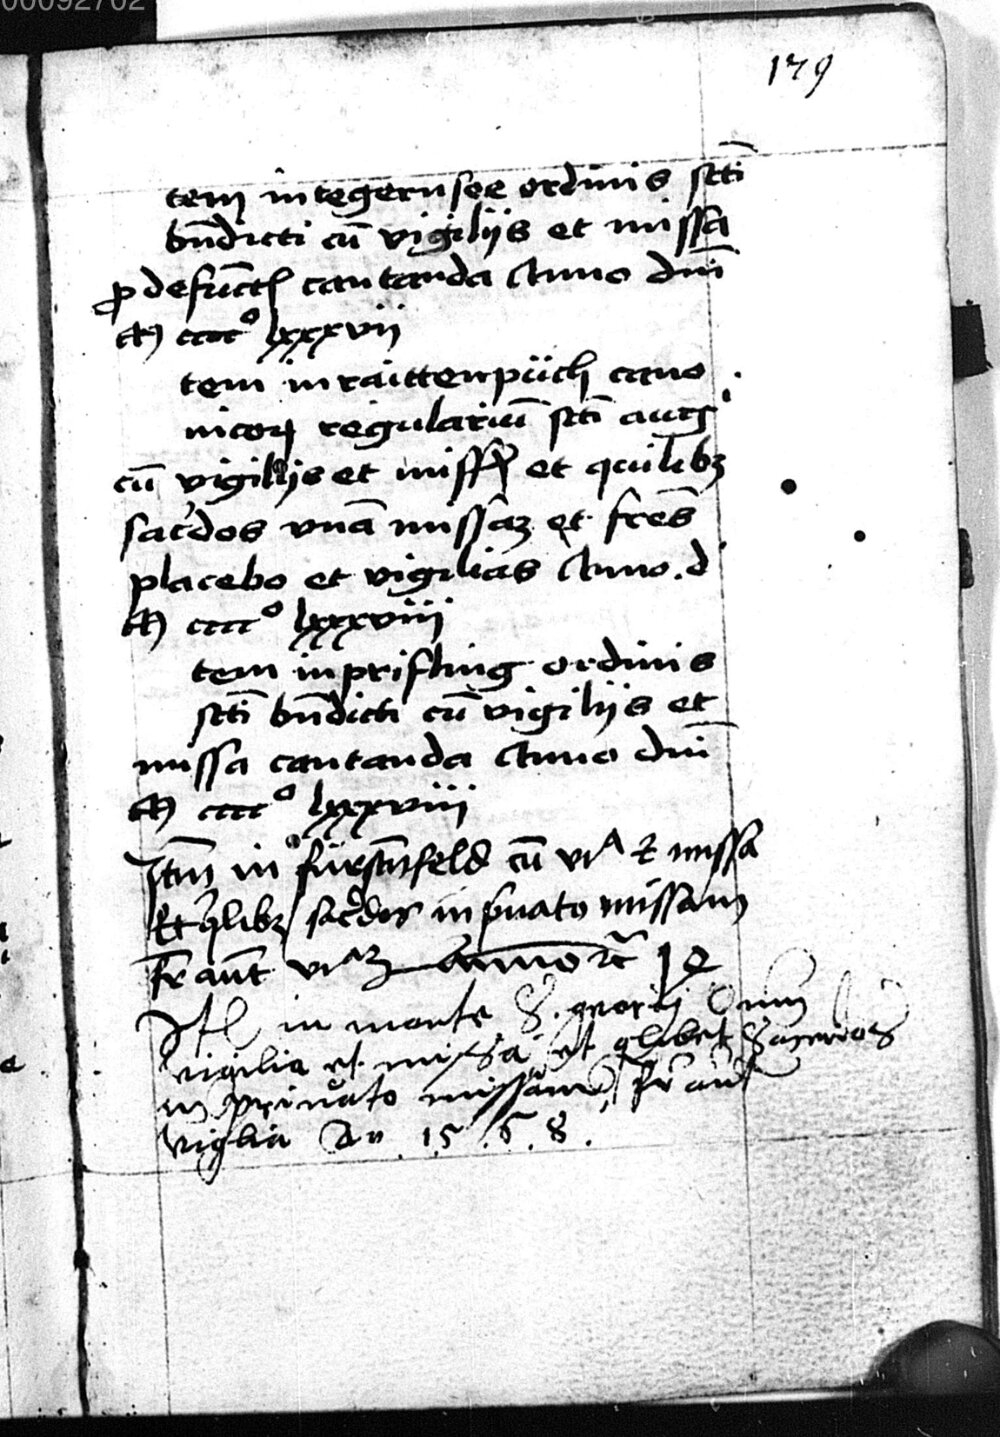 00092762
179
tem in tegernsee ordinis scti
bndicti cu vigiliis et missa
p defuct cantanda Anno dni
M cccc° lxxxvii
tem in raittenpuch cano
nicorum regularium scti aug
cu vigiliis et miss et quilibz
sacdos vna missaz et fres
placebo et vigilias Anno . d
M cccc° lxxxviii
tem in prifling ordinis
scti bndicti cu vigiliis et
missa cantanda Anno dni
M cccc° lxxxviii
Itm in furstnfeld cu via et missa
Et qlibz sacdos in puato missam
fr aut viaz Anno
Itl in monte S. georii cum
vigilia et missa et qlibet Sacerdos
in privato missam fr aut
viglia An 15.6.8.